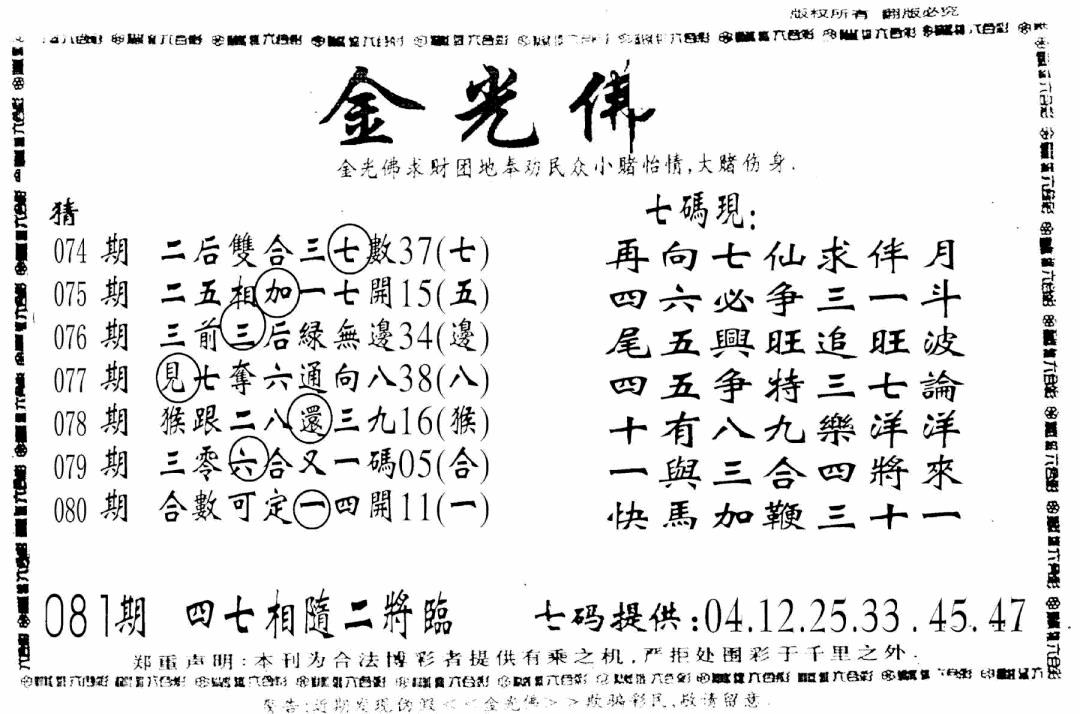 版权所有 翻版必究
金光佛
金光佛求財团地奉劝民众小赌怡情,大赌伤身.
猜
074期 二后雙合三七數37(七)
075期 二五相加一七開15(五)
076期 三前三后緑無邊34(邊)
077期 見七奪六通向八38(八)
078期 猴跟二八還三九16(猴)
079期 三零六合又一碼05(合)
080期 合數可定一四開11(一)
七碼現:
再向七仙求伴月
四六必争三一斗
尾五興旺追旺波
四五争特三七論
十有八九樂洋洋
一與三合四將來
快馬加鞭三十一
081期 四七相隨二將臨
七码提供:04.12.25.33.45.47
郑重声明:本刊为合法博彩者提供有乘之机,严拒处围彩于千里之外.
警告:近期发现伪假<<金光佛>>欺骗彩民,敬请留意.